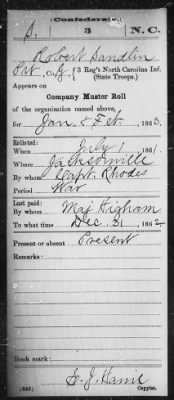 Confederate.
S. 3 N.C.
Robert Sandlin
Pvt, Co. G, { 3 Reg't North Carolina Inf.
(State Troops.)
Appears on
Company Muster Roll
of the organization named above,
for Jan & Feb, 1863.
Enlisted:
When July 1, 1861.
Where Jacksonville
By whom Capt. Rhodes
Period War
Last paid:
By whom Maj Higham
To what time Dec. 31, 1862
Present or absent Present
Remarks:
Book mark:
Copyist.